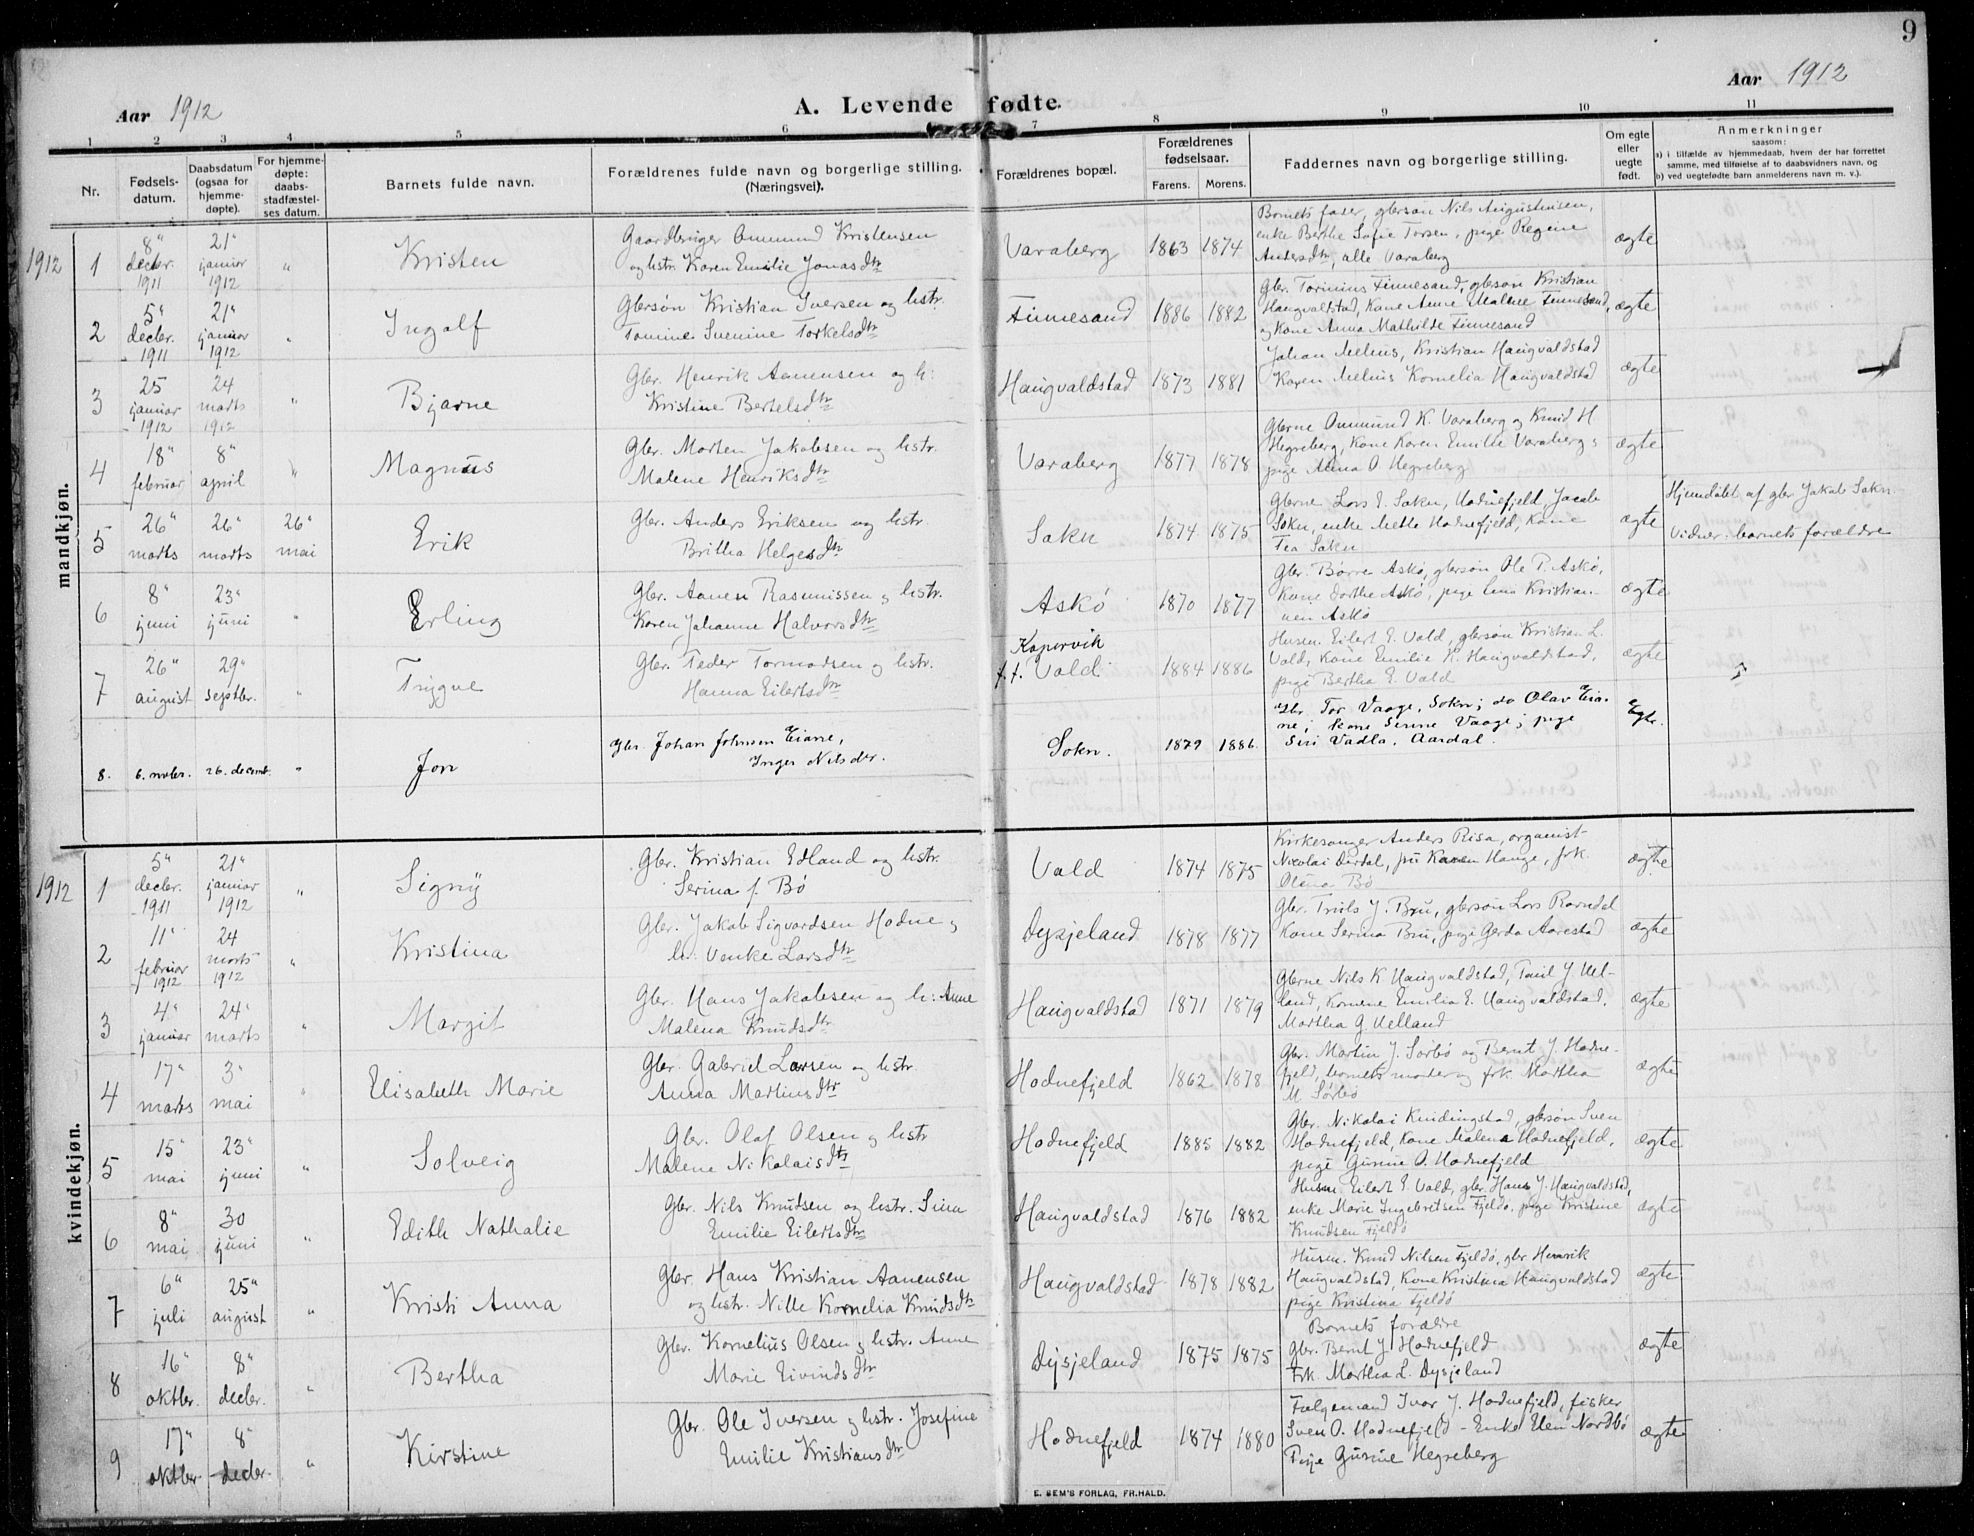 9
Aar 1912
A. Levende fødte.
Aar 1912
1 2 3 4 5 6 7 8 9 10 11
Nr.
Fødsels-
datum.
Daabsdatum
(ogsaa for
hjemme-
døpte).
For hjemme-
døpte:
daabs-
stadfæstel-
ses datum.
Barnets fulde navn.
Forældrenes fulde navn og borgerlige stilling.
(Næringsvei).
Forældrenes bopæl.
Forældrenes
fødselsaar.
Farens. Morens.
Faddernes navn og borgerlige stilling.
Om egte
eller
uegte
født.
Anmerkninger
saasom:
a) i tilfælde av hjemmedaab, hvem der har forrettet
samme, med tilføielse af to daabsvidners navn, og
b) ved uegtefødte barn anmelderens navn m. v.).
mandkjøn.
1912 1
8" decbr. 1911
21" januar 1912
"
Kristen
Gaardbruger Ommund Kristensen
og hstr. Karen Emilie Jonasdtr
Varaberg 1863 1874
Barnets faser, gbrsøn Nils Augustinsen,
enke Berthe Sofie Torsen, pige Regine
Andersdtr, alle Varaberg
ægte
2
5" decbr. 1911
21" januar 1912
"
Ingolf
Gbrsøn Kristian Iversen og hstr.
Tomine Sverine Torkelsdtr
Finnesand 1886 1882
Gbr. Torinius Finnesand, gbrsøn Kristian
Haugvaldstad, Kone Anne Malene Finnesand,
og Kone Anna Mathilde Finnesand
ægte
3
25 januar 1912
24 marts 1912
"
Bjarne
Gbr. Henrik Aanensen og h:
Kristine Bertelsdtr
Haugvaldstad 1873 1881
Johan Melhus, Kristian Haugvaldstad
Karen Melhus Kornelia Haugvaldstad
ægte
4
18" februar
8" april
"
Magnus
Gbr. Morten Jakobsen og hstr.
Malene Henriksdtr
Varaberg 1877 1878
Gbrne Ommund K. Varaberg og Knud H.
Hegreberg, Kone Karen Emilie Varaberg,
pige Anna O. Hegreberg
ægte
5
26" marts
26" marts
26" mai
Erik
Gbr. Anders Eriksen og hstr.
Britha Helgesdtr
Sokn 1874 1875
Gbrne Lars E. Sokn, Hodnefjeld Jacob
Sokn, enke Mette Hodnefjeld, Kone
Tea Sokn
ægte
Hjemdøbt af gbr Jakob Sokn
Vidner: barnets forældre
6
8" juni
23" juni
"
Erling
Gbr. Aanen Rasmussen og hstr.
Karen Johanne Halvorsdtr
Askø 1870 1877
Gbr. Børre Askø, gbrsøn Ole P. Askø,
Kone Dorthe Askø, pige Lina Kristian-
sen Askø
ægte
7
26" august
29" septbr.
"
Trygve
Gbr. Peder Tormodsen og hstr.
Hanna Eilertsdtr
Kopervik
f.f. Vold 1884 1886
Husm. Eilert E. Vold, gbrsøn Kristian L.
Vold, Kone Emilie K. Haugvaldstad,
pige Bertha E. Vold
ægte
8. 6. novbr. 26. decemb. "
Jon
Gbr. Johan Johnsen Eiane,
Inger Nilsdtr.
Sokn. 1879 1886.
Gbr. Tor Vaage, Sokn; do Olav Eia-
ne; kone Serine Vaage; pige
Siri Vadla, Aardal.
Egte.
kvindekjøn.
1912 1
5" decbr. 1911
21" januar 1912
"
Signy
Gbr. Kristian Edland og hstr.
Serina f. Bø
Vold 1874 1875
Kirkesanger Anders Risa, organist
Nicolai Dirdal, pii Karen Hauge, frk.
Olena Bø
ægte
2
11" februar 1912
24 marts 1912
"
Kristina
Gbr. Jakob Sigvardsen Hodne og
h: Venke Larsdtr
Dysjeland 1878 1877
Gbr. Truls J. Bru, gbrsøn Lars Ramdal
Kone Serina Bru, pige Gerda Aarestad
ægte
3
4" januar
24" marts
"
Margit
Gbr. Hans Jakobsen og h: Anne
Malena Knudsdtr
Haugvaldstad 1871 1879
Gbrne Nils K Haugvaldstad, Paul J. Uel-
land, Konene Emilia E. Haugvaldstad,
Martha G. Uelland
ægte
4
17" marts
3" mai
"
Elisabeth Marie
Gbr. Gabriel Larsen og hstr.
Anna Martinsdtr
Hodnefjeld 1862 1878
Gbr. Martin J. Sørbø og Bernt J. Hodne-
fjeld, barnets moder og frk. Martha
M. Sørbø
ægte
5
15" mai
23" juni
"
Solveig
Gbr. Olaf Olsen og hstr
Malene Nikolaisdtr
Hodnefjeld 1885 1882
Gbr. Nikolai Kindingstad, gbrsøn Sven
Hodnefjeld, Kone Malena Hodnefjeld,
pige Gurine O. Hodnefjeld
ægte
6
8" mai
30 juni
"
Edith Nathalie
Gbr. Nils Knudsen og hstr. Sina
Emilie Eilertsdtr
Haugvaldstad 1876 1882
Husm. Eilert E. Vold, gbr. Hans J. Haugvaldstad,
enke Marie Ingebretsen Fjeldø, pige Kristine
Knudsen Fjeldø
ægte
7
6" juli
25" august
"
Kristi Anna
Gbr. Hans Kristian Aanensen
og hstr. Nille Kornelia Knudsdtr
Haugvaldstad 1878 1882
Husm. Knud Nilsen Fjeldø, gbr. Henrik
Haugvaldstad, Kone Kristina Haugvaldstad
pige Kristina Fjeldø
ægte
8
16" oktbr.
8" decbr.
"
Bertha
Gbr. Kornelius Olsen og hstr. Anne
Marie Eivindsdtr
Dysjeland 1875 1875
Barnets forældre
Gbr. Bernt J Hodnefjeld
Frk. Martha L. Dysjeland
ægte
9
17" oktbr.
8" decbr.
"
Kirstine
Gbr. Ole Iversen og hstr. Josefine
Emilie Kristiansdtr
Hodnefjeld 1874 1880
Følgemand Ivar J. Hodnefjeld, fisker
Sven O. Hodnefjeld - Enke Elen Nordbø
Pige Gurine Hegreberg
ægte
E. SEM'S FORLAG, FR.HALD.